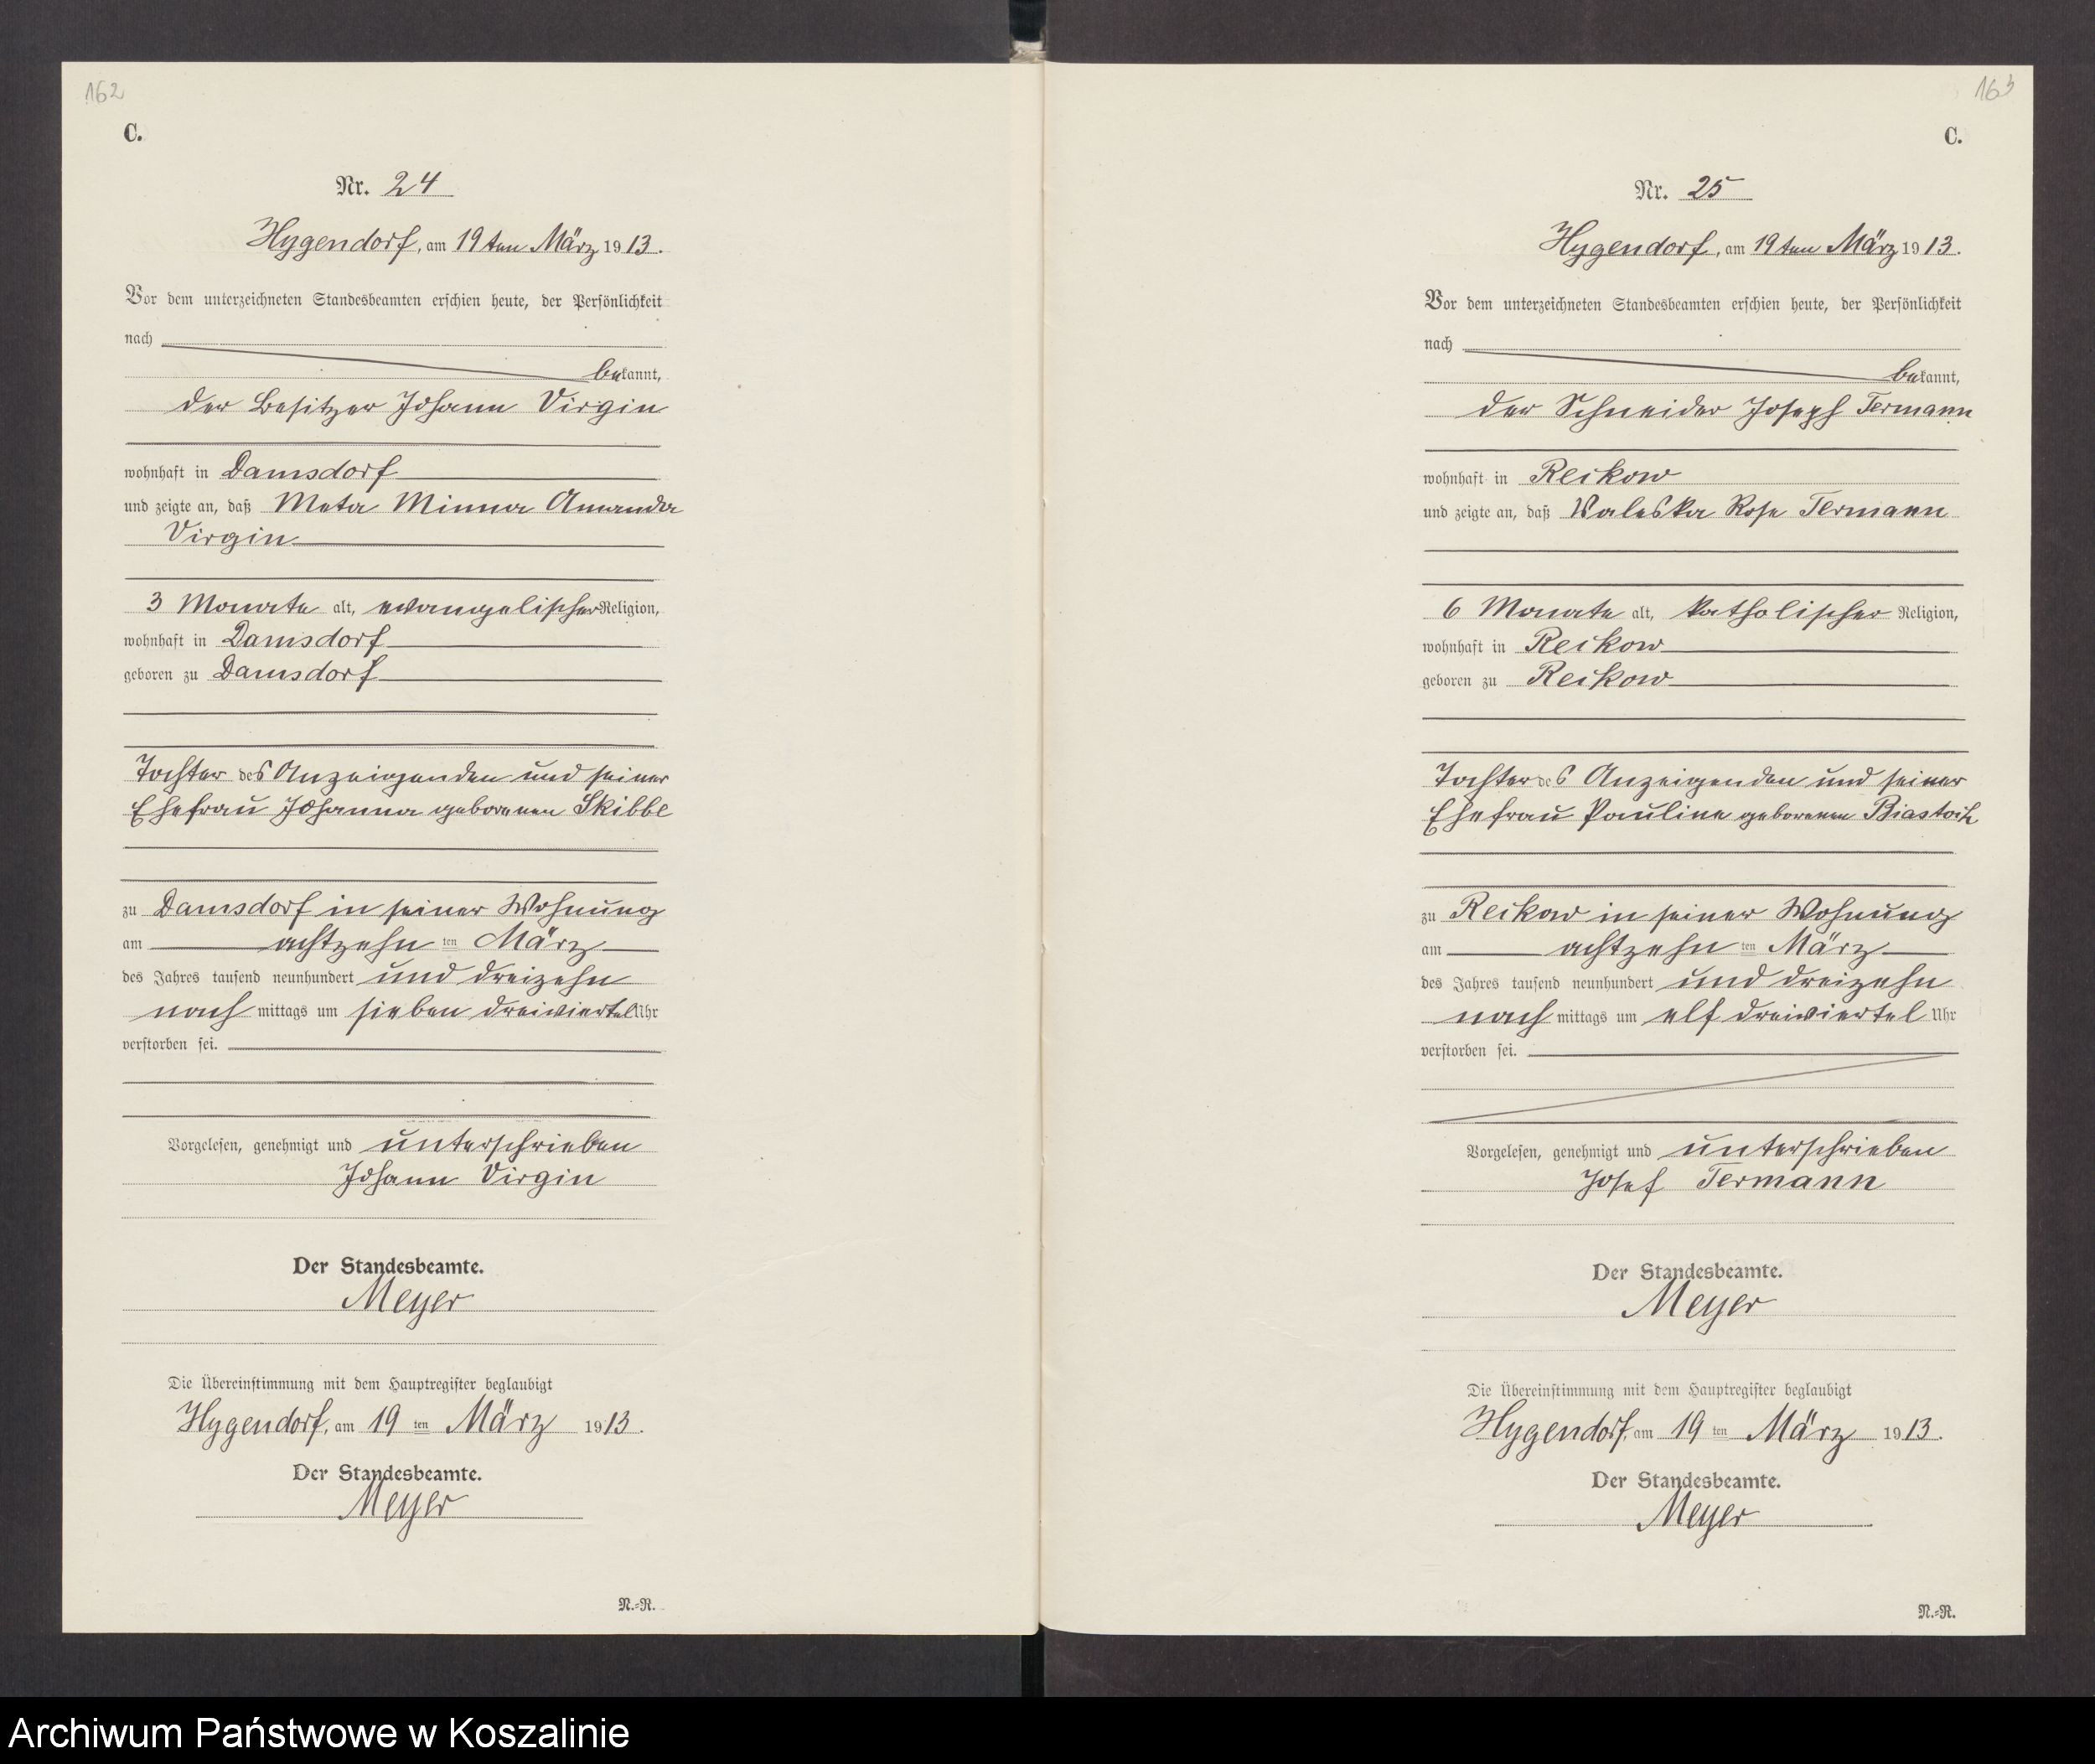 162
C.
Nr. 24
Hygendorf, am 19ten März 1913.
Vor dem unterzeichneten Standesbeamten erschien heute, der Persönlichkeit
nach
bekannt,
der Besitzer Johann Virgin
wohnhaft in Damsdorf
und zeigte an, daß Meta Minna Amanda
Virgin
3 Monate alt, evangelischer Religion,
wohnhaft in Damsdorf
geboren zu Damsdorf
Tochter des Anzeigenden und seiner
Ehefrau Johanna geborenen Skibbe
zu Damsdorf in seiner Wohnung
am achtzehn ten März
des Jahres tausend neunhundert und dreizehn
nach mittags um sieben dreiviertel Uhr
verstorben sei.
Vorgelesen, genehmigt und unterschrieben
Johann Virgin
Der Standesbeamte.
Meyer
Die Übereinstimmung mit dem Hauptregister beglaubigt
Hygendorf, am 19 ten März 1913.
Der Standesbeamte.
Meyer
N.=R.
163
C.
Nr. 25
Hygendorf, am 19ten März 1913.
Vor dem unterzeichneten Standesbeamten erschien heute, der Persönlichkeit
nach
bekannt,
der Schneider Joseph Termann
wohnhaft in Reikow
und zeigte an, daß Waleska Rosa Termann
6 Monate alt, katholischer Religion,
wohnhaft in Reikow
geboren zu Reikow
Tochter des Anzeigenden und seiner
Ehefrau Pauline geborenen Biastoch
zu Reikow in seiner Wohnung
am achtzehn ten März
des Jahres tausend neunhundert und dreizehn
nach mittags um elf dreiviertel Uhr
verstorben sei.
Vorgelesen, genehmigt und unterschrieben
Josef Termann
Der Standesbeamte.
Meyer
Die Übereinstimmung mit dem Hauptregister beglaubigt
Hygendorf, am 19 ten März 1913.
Der Standesbeamte.
Meyer
N.=R.
Archiwum Państwowe w Koszalinie